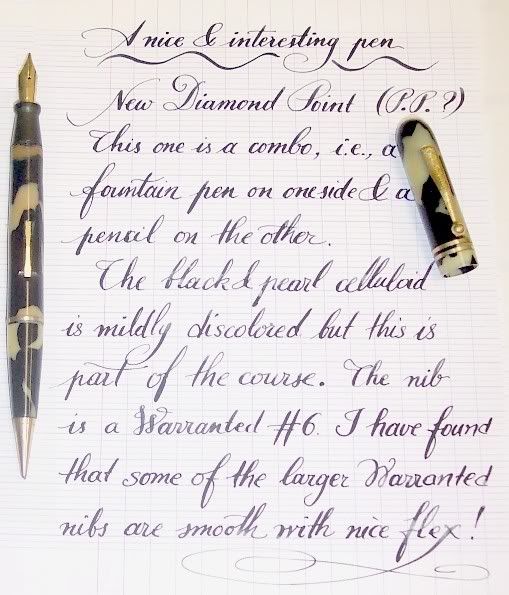 A nice & interesting pen
New Diamond Point (P.P.?)
This one is a combo, i.e., a
fountain pen on one side & a
pencil on the other.
The black & pearl celluloid
is mildly discolored but this is
part of the course. The nib
is a Warranted #6. I have found
that some of the larger Warranted
nibs are smooth with nice flex!